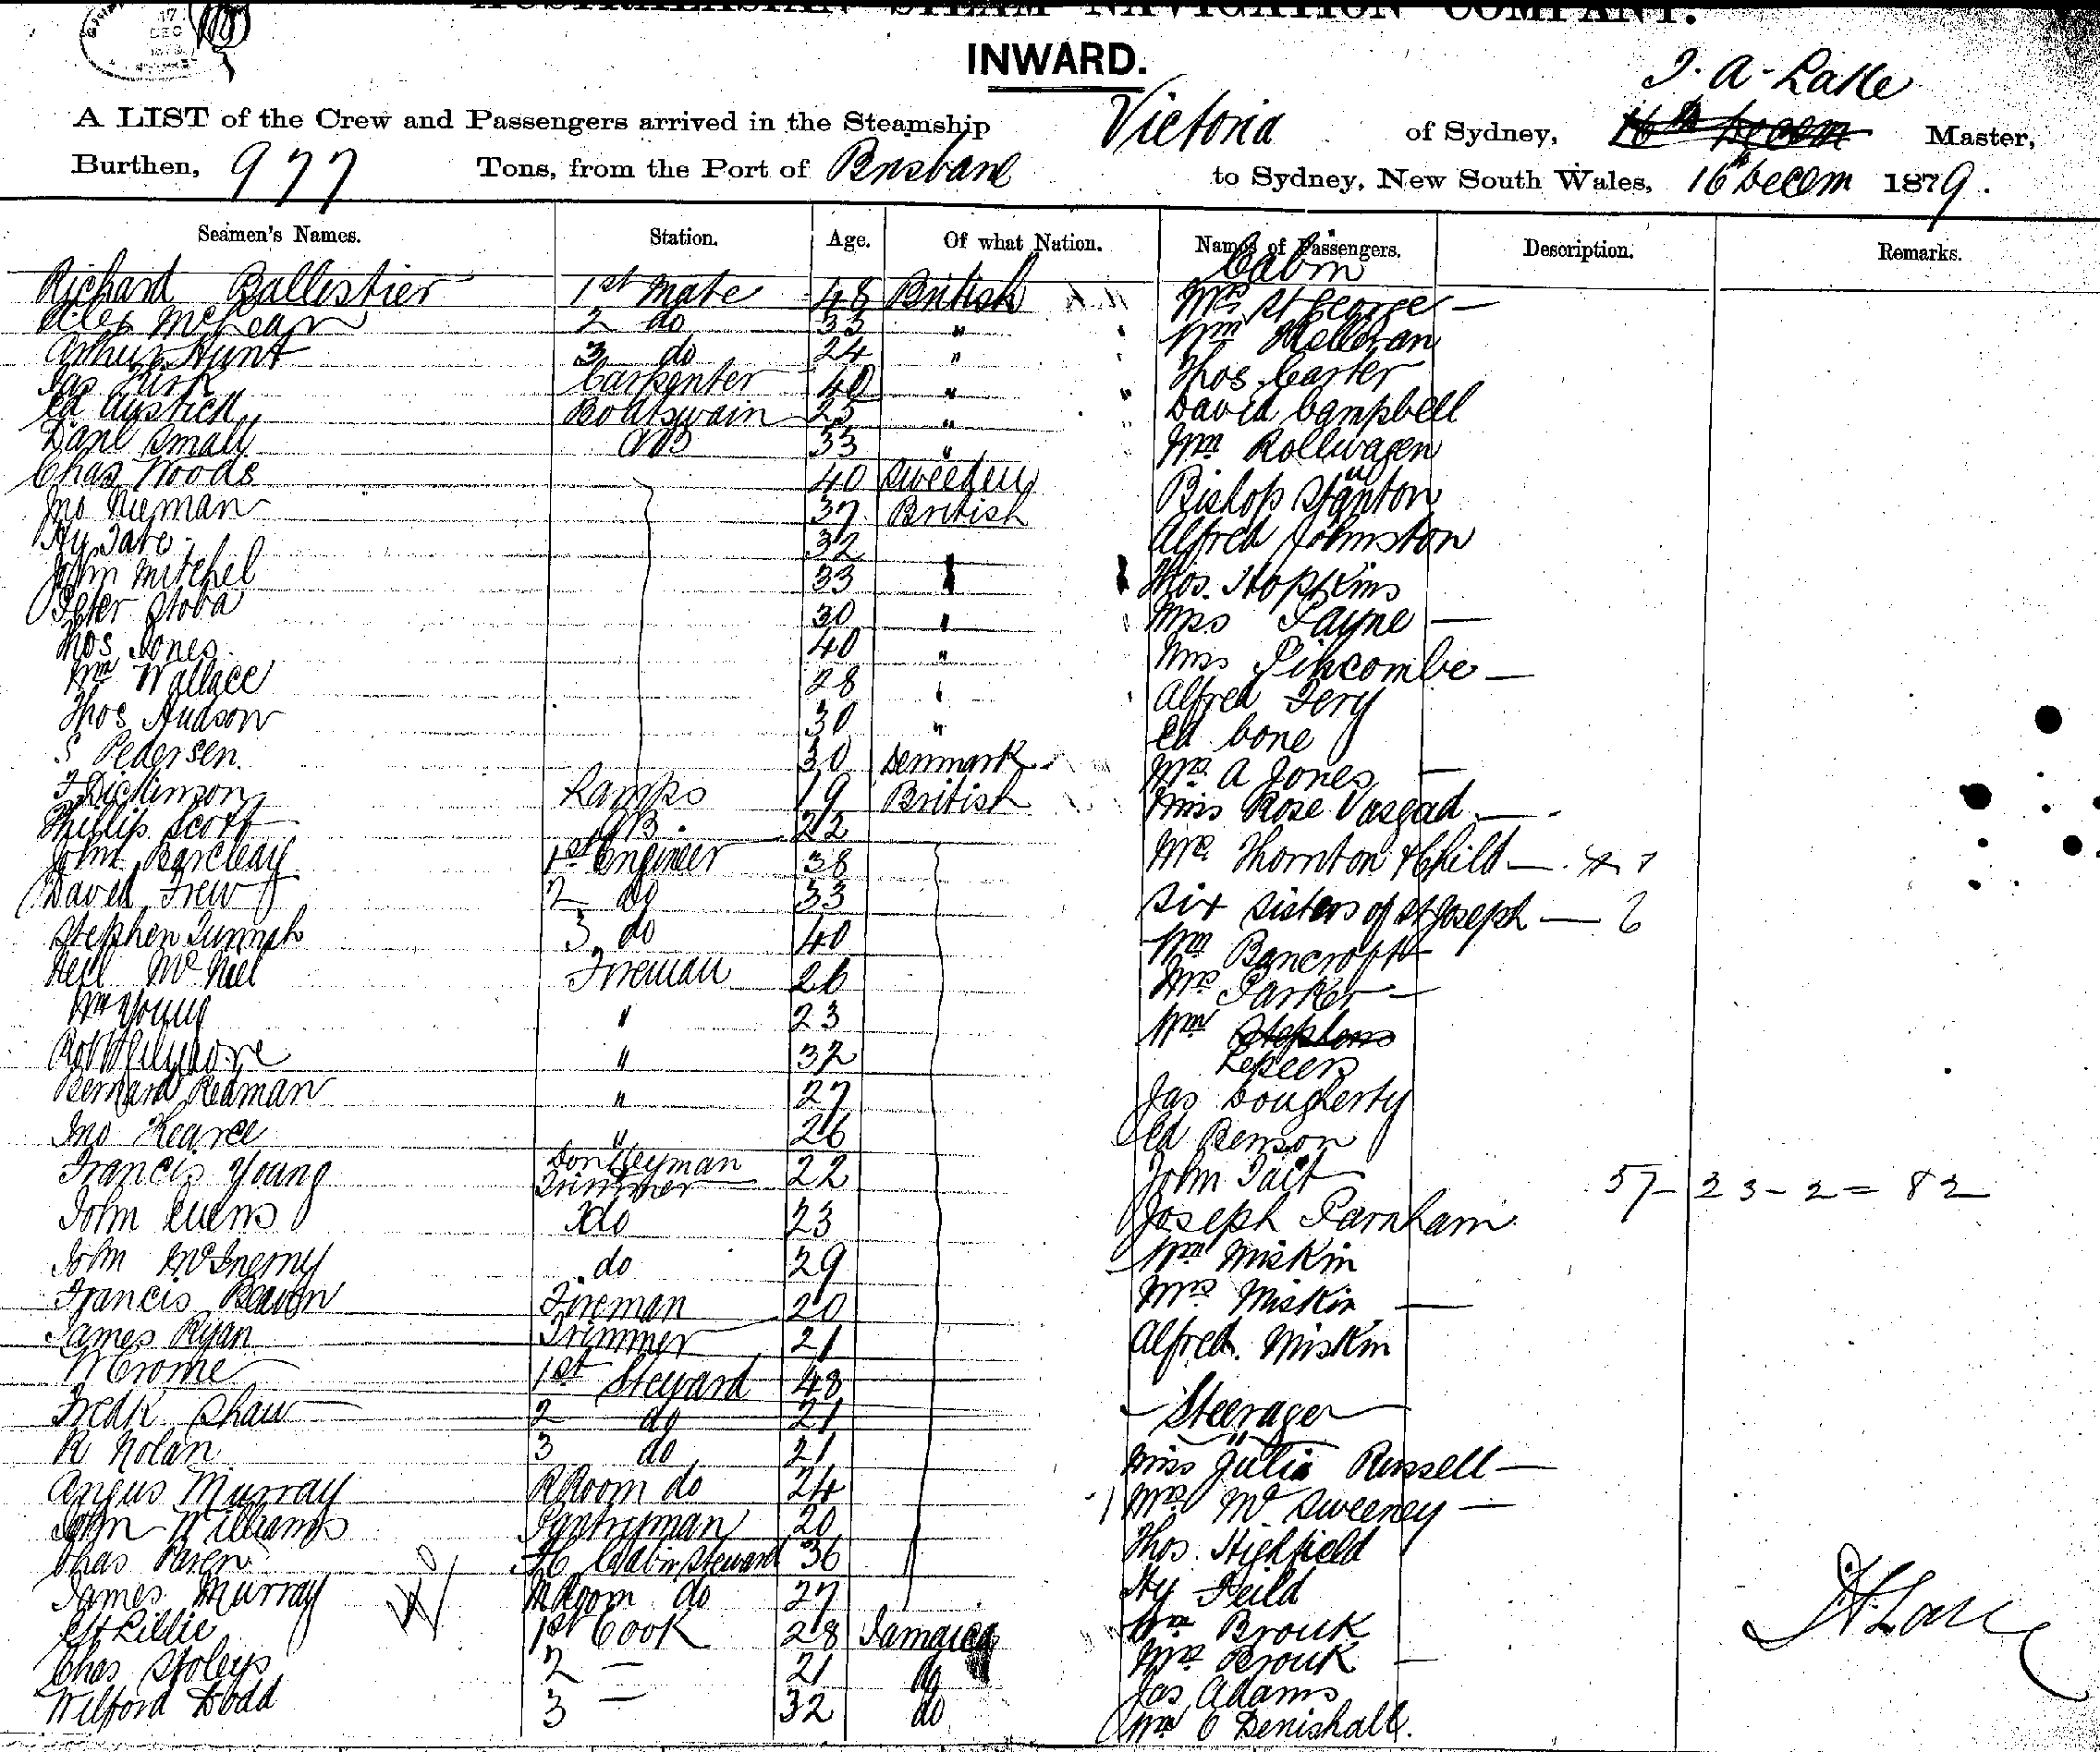 AUSTRALASIAN STEAM NAVIGATION COMPANY.
INWARD.
17
DEC
J. A. Lake
A LIST of the Crew and Passengers arrived in the Steamship Victoria of Sydney, 16th Decem Master,
Burthen, 977 Tons, from the Port of Brisbane to Sydney, New South Wales, 16th Decem 1879.
Seamen's Names. Station. Age. Of what Nation. Names of Passengers. Description. Remarks.
Cabin
Richard Ballestier 1st Mate 48 British Mrs St George —
Alex McLean 2 do 33 " Wm Halloran
Arthur Hunt 3 do 24 " Thos Carter
Jas Kirk Carpenter 40 " David Campbell
Ed Austick Boatswain 25 " Wm Rollwagen
Danl Small AB 33 "
Chas Woods 40 Sweeden Bishop Stanton
Jno Nieman 37 British Alfred Johnston
Hy Tate 32
John Mitchel 33 " Thos. Hopkins
Peter Stoba 30 " Miss Payne —
Thos Jones 40 " Miss Pincombe —
Wm Wallace 28 " Alfred Tery
Thos Hudson 30 " Ed Cone
S Pedersen 30 Denmark Mrs A Jones —
T Dickinson Lamps 19 British Miss Rose Vasgad —
Phillip Scott AB. 22
John Barclay 1st Engineer 38 Mrs Thornton & Child —
David Frew 2 do 33 Six Sisters of St Joseph — 6
Stephen 3 do 40 Wm Bancroft
Neil McNeil Fireman 26 Mrs Parker —
Wm Young " 23 Wm Stephens
Robt Gilmore " 32 Lepeers
Bernard Redman " 27 Jas Dougherty
Jno Kearce " 26 Ed Benson
Francis Young Donkeyman Trimmer 22 John Tait
57 - 23 - 2 = 82
John Evens do 23 Joseph Parnham
John McInerny do 29 Wm Miskin
Francis Fireman 20 Mrs Miskin —
James Ryan Trimmer 21 Alfred Miskin
W Crome 1st Steward 48
Fredk Shaw 2 do 21 Steerage
R Nolan 3 do 21 Miss Julia Russell —
Angus Murray R Room do 24 Mrs McSweeney —
John Williams Pantryman 20 Thos. Highfield
Chas Paren F C Cabin Steward 36 Hy Feild
James Murray M Room do 27
Lillie 1st Cook 28 Jamaica Wm Brouk
Chas Stoleys 2 — 21 do Mrs Brouk —
Wilford Dodd 3 — 32 do Jas Adams
Wm O Denishall.
J A Lake